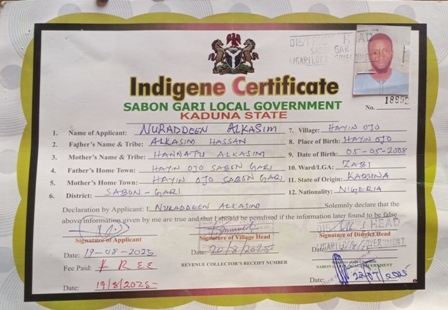 DISTRICT HEAD
SABON GARI
Indigene Certificate
SABON GARI LOCAL GOVERNMENT
KADUNA STATE
No.
1. Name of Applicant: NURADDEEN ALKASIM
2. Father's Name & Tribe: ALKASIM HASSAN
3. Mother's Name & Tribe: HANNATU ALKASIM
4. Father's Home Town: HAYIN OJO SABON GARI
5. Mother's Home Town: HAYIN OJO SABON GARI
6. District: SABON - GARI
7. Village: HAYIN OJO
8. Place of Birth: HAYIN OJO
9. Date of Birth: 05-05-2008
10. Ward/LGA: ZABI
11. State of Origin: KADUNA
12. Nationality: NIGERIA
Declaration by Applicant: I NURADDEEN ALKASIM Solemnly declare that the
above information given by me are true and that I should be penalised if the information later found to be false
Signature of Applicant
Signature of Village Head
Signature of District Head
Date: 19-08-2025
Date: 20/8/2025
Date:
Fee Paid: FREE
REVENUE COLLECTOR'S RECEIPT NUMBER
Date: 19/8/2025
Date: